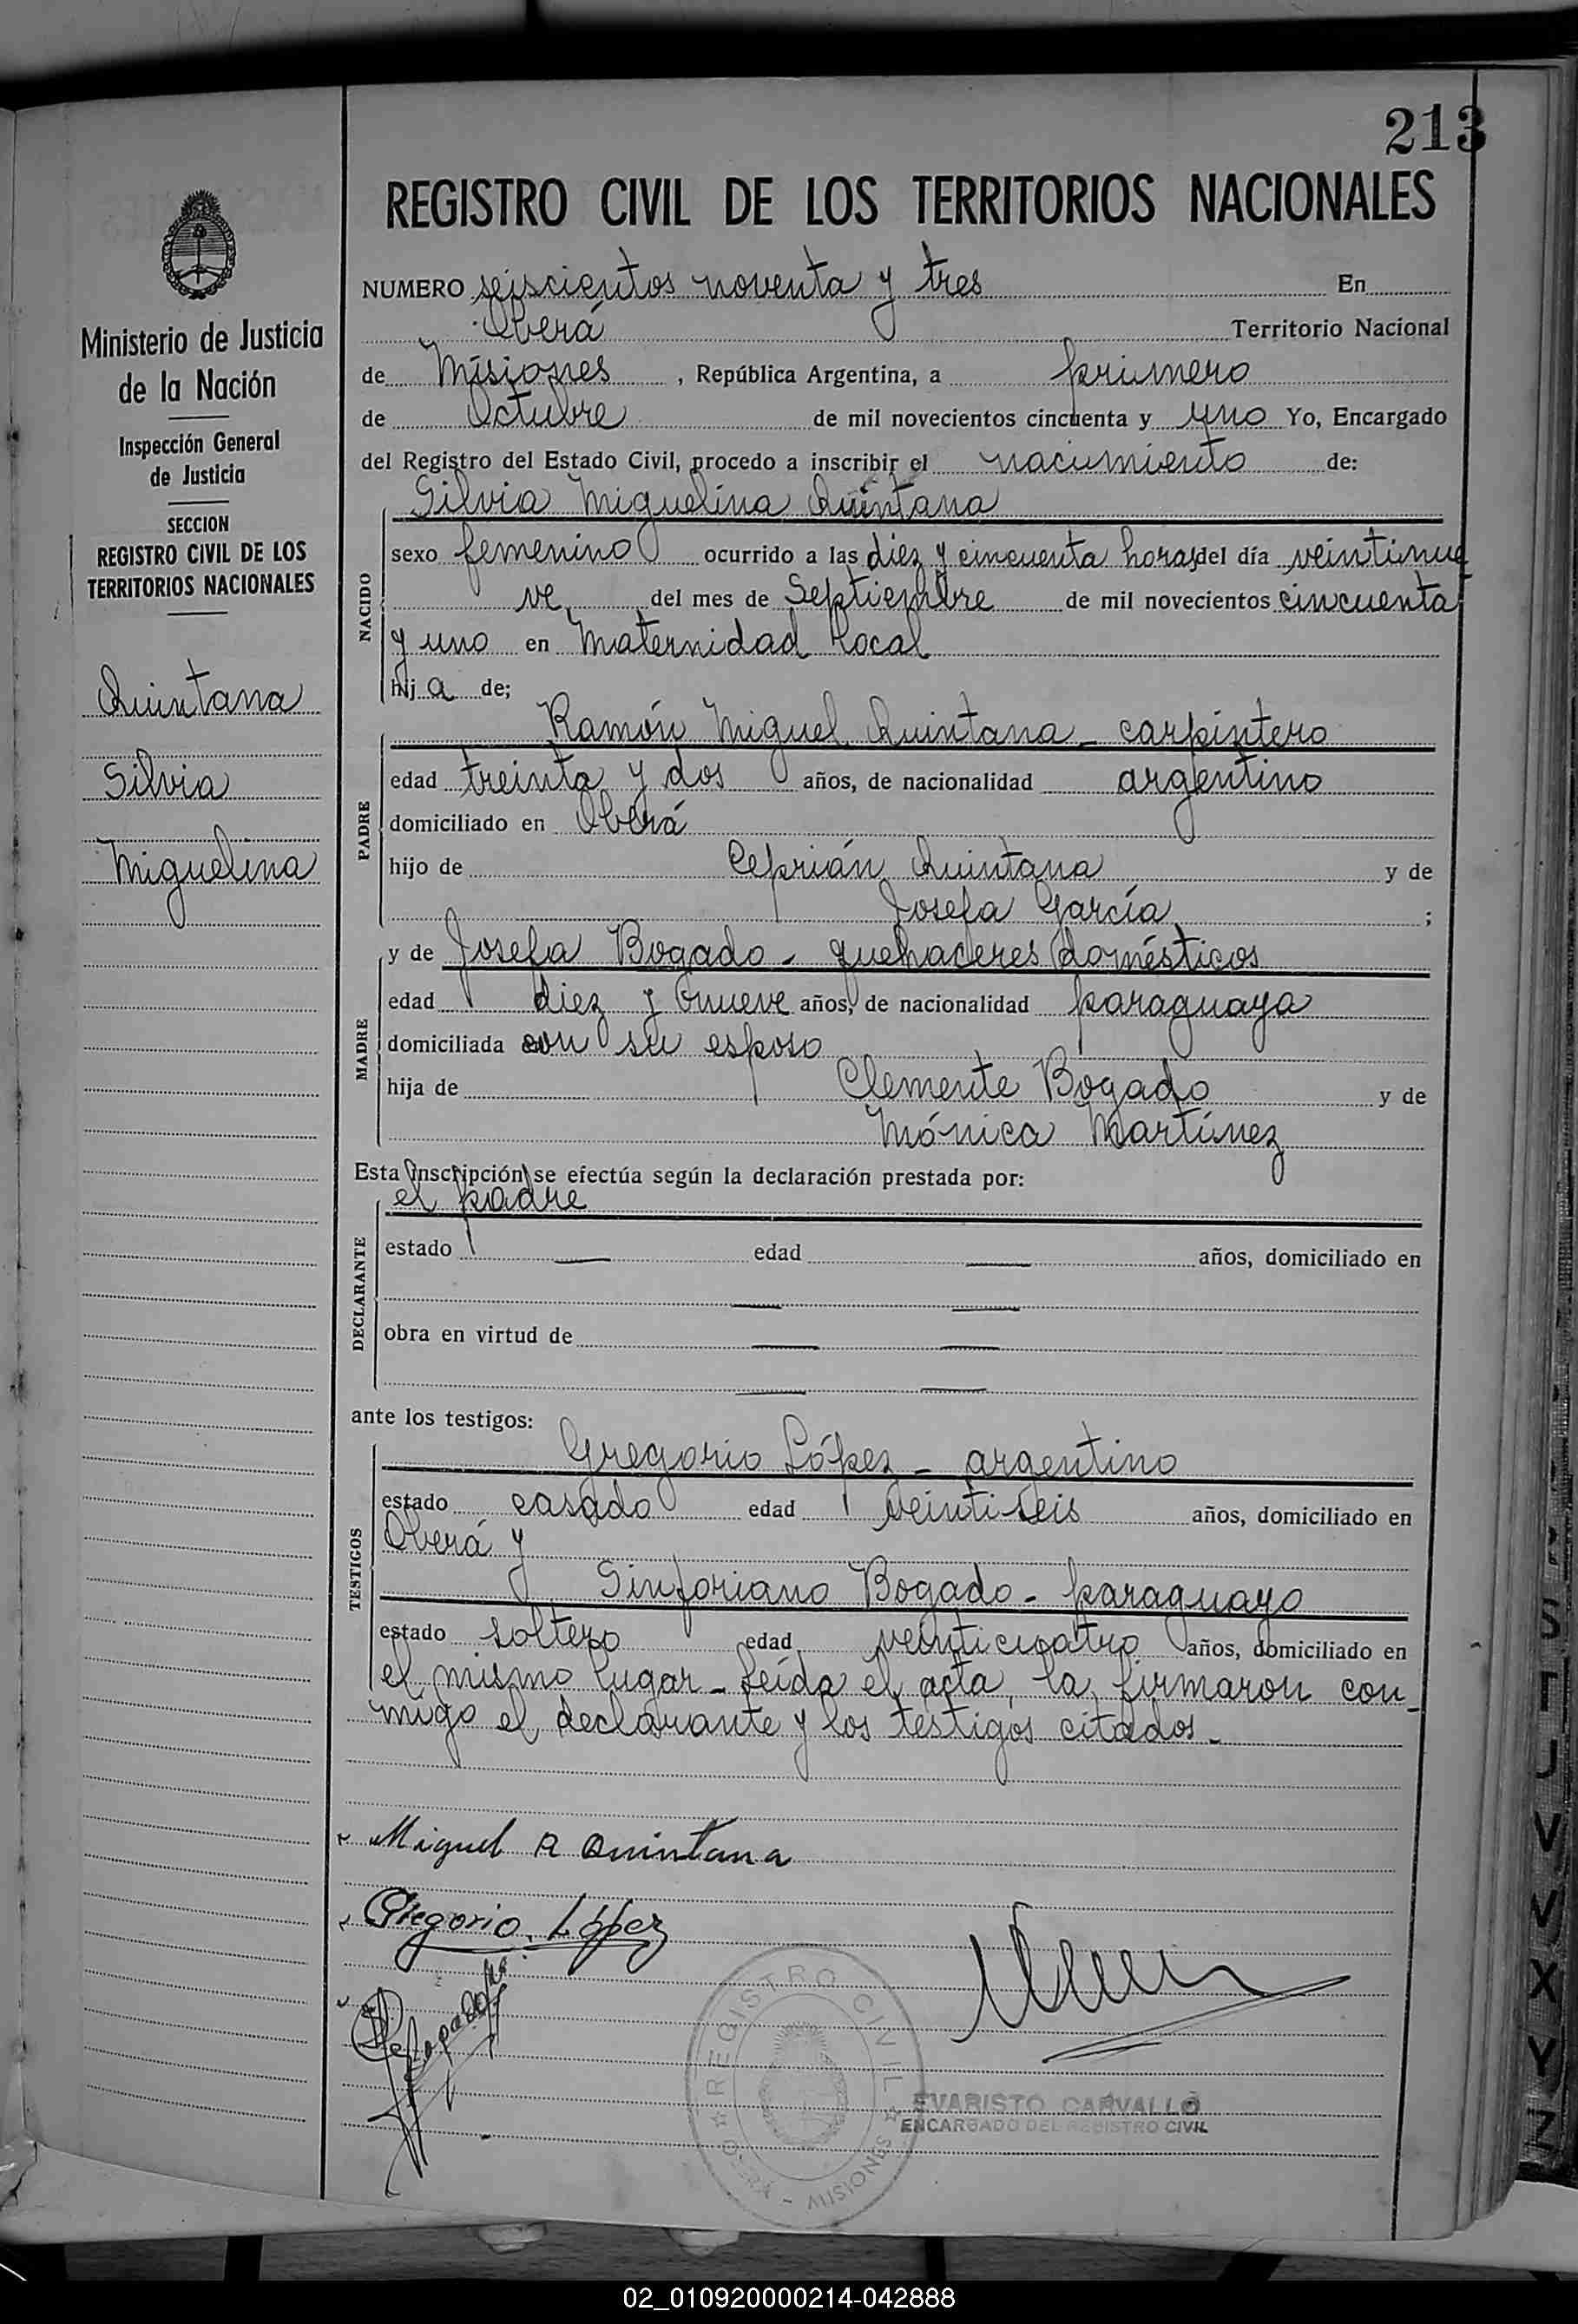 213
REGISTRO CIVIL DE LOS TERRITORIOS NACIONALES
Ministerio de Justicia
de la Nación
Inspección General
de Justicia
SECCION
REGISTRO CIVIL DE LOS
TERRITORIOS NACIONALES
Quintana
Silvia
Miguelina
NUMERO seiscientos noventa y tres En
Oberá Territorio Nacional
de Misiones , República Argentina, a primero
de Octubre de mil novecientos cincuenta y uno Yo, Encargado
del Registro del Estado Civil, procedo a inscribir el nacimiento de:
Silvia Miguelina Quintana
NACIDO
sexo femenino ocurrido a las diez y cincuenta horas del día veintinue
ve del mes de Septiembre de mil novecientos cincuenta
y uno en Maternidad Local
hij a de;
PADRE
Ramón Miguel Quintana - carpintero
edad treinta y dos años, de nacionalidad argentino
domiciliado en Oberá
hijo de Ceprián Quintana y de
Josefa García ;
MADRE
y de Josefa Bogado - quehaceres domésticos
edad diez y nueve años, de nacionalidad paraguaya
domiciliada con su esposo
hija de Clemente Bogado y de
Mónica Martínez
Esta inscripción se efectúa según la declaración prestada por:
el padre
DECLARANTE
estado — edad — años, domiciliado en
— —
obra en virtud de — —
— —
ante los testigos:
TESTIGOS
Gregorio López - argentino
estado casado edad veintiseis años, domiciliado en
Oberá y
Sinforiano Bogado - paraguayo
estado soltero edad veinticuatro años, domiciliado en
el mismo lugar - Leída el acta, la firmaron con-
migo el declarante y los testigos citados -
Miguel R Quintana
Gregorio López
REGISTRO CIVIL
OBERA - MISIONES
EVARISTO CARVALLO
ENCARGADO DEL REGISTRO CIVIL
S
T
J
V
V
X
Y
Z
02_010920000214-042888